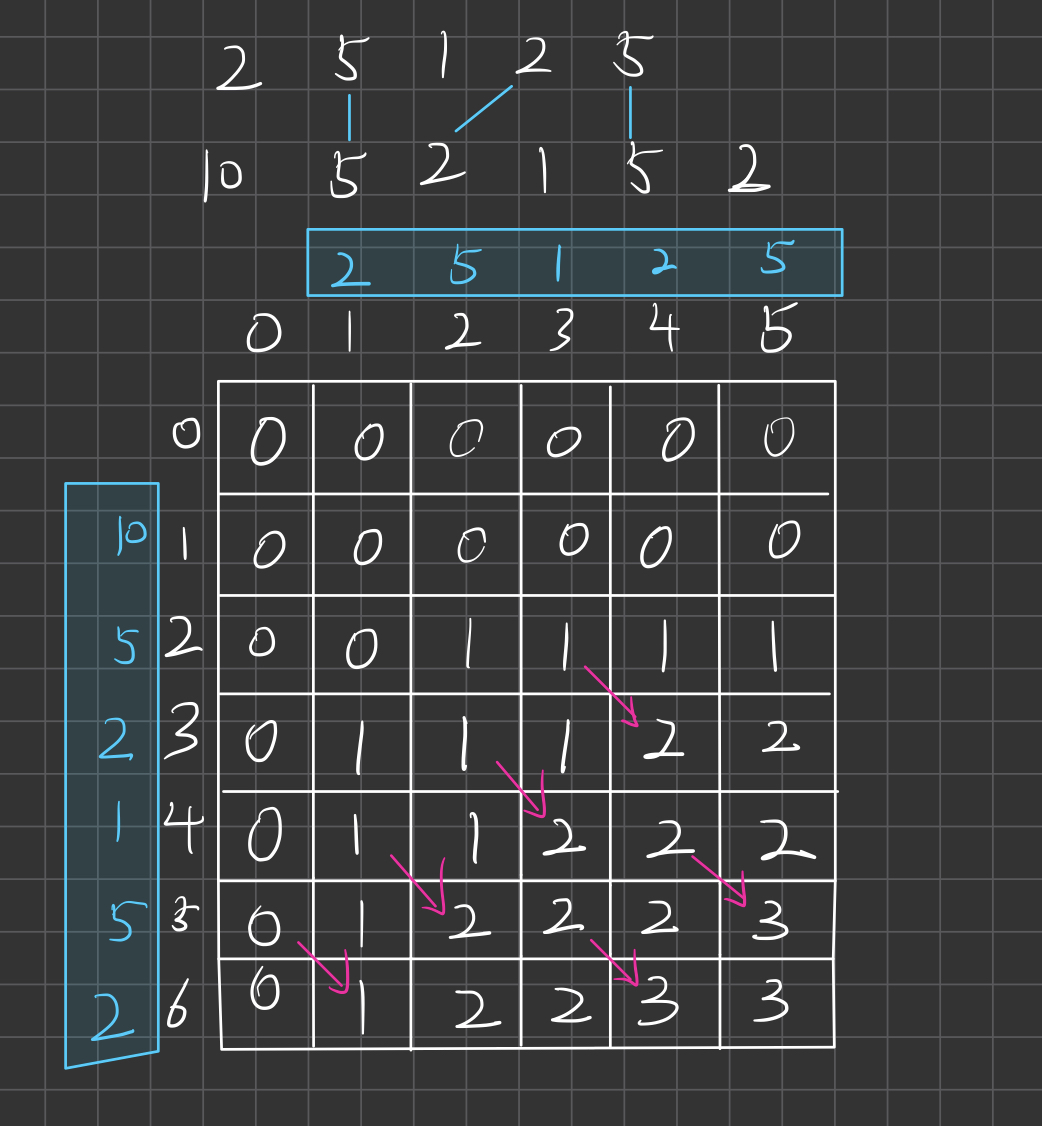 2 5 1 2 5
10 5 2 1 5 2
2 5 1 2 5
0 1 2 3 4 5
0 0 0 0 0 0 0
10 1 0 0 0 0 0 0
5 2 0 0 1 1 1 1
2 3 0 1 1 1 2 2
1 4 0 1 1 2 2 2
5 5 0 1 2 2 2 3
2 6 0 1 2 2 3 3